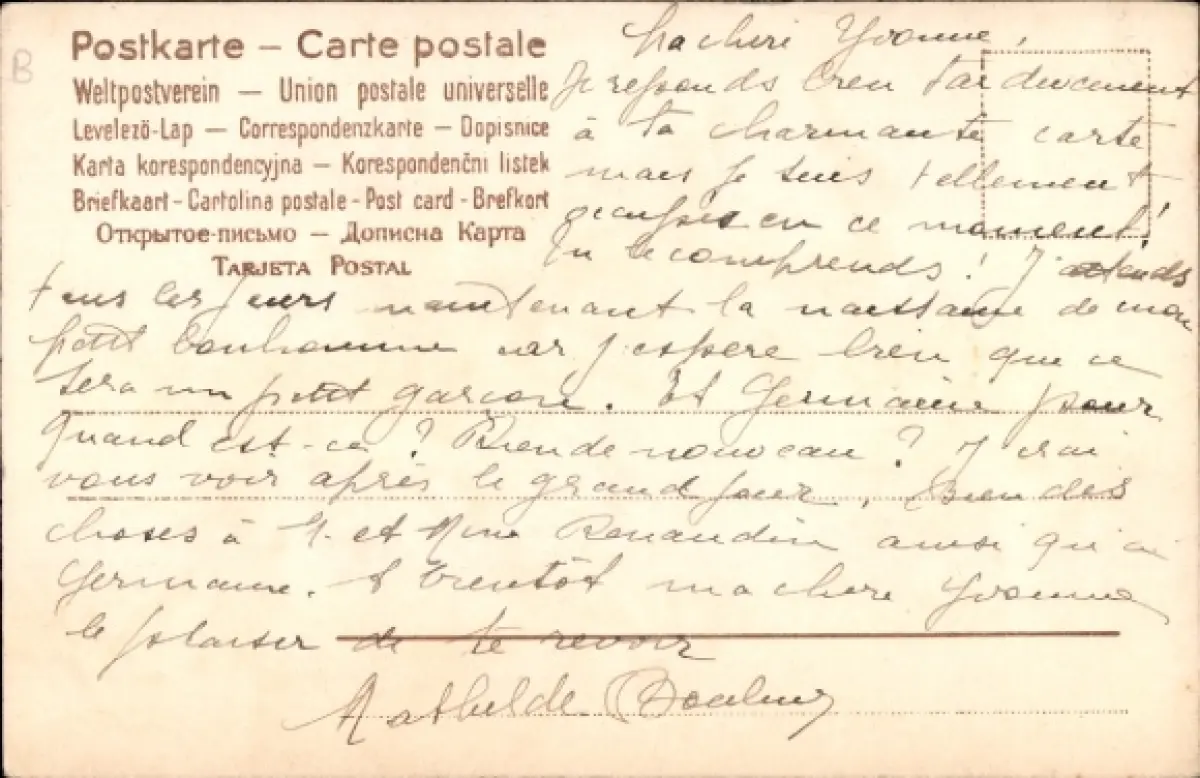 B
Postkarte – Carte postale
Weltpostverein — Union postale universelle
Levelező-Lap — Correspondenzkarte — Dopisnice
Karta korespondencyjna — Korespondenční listek
Briefkaart - Cartolina postale - Post card - Brefkort
Открытое-письмо — Дописна Карта
Tarjeta Postal
Ma chère Yvonne,
Je responds bien tardivement
à ta charmante carte
mais je suis tellement
occupée en ce moment !
Tu le comprends ! J'attends
tous les jours maintenant la naissance de mon
petit bonhomme car j'espère bien que ce
sera un petit garçon. Et Germaine pour
quand est-ce ? Rien de nouveau ? J'irai
vous voir après le grand jour. Bien des
choses à M. et Mme Renaudin ainsi qu'à
Germaine. A bientôt ma chère Yvonne
le plaisir de te revoir
Mathilde